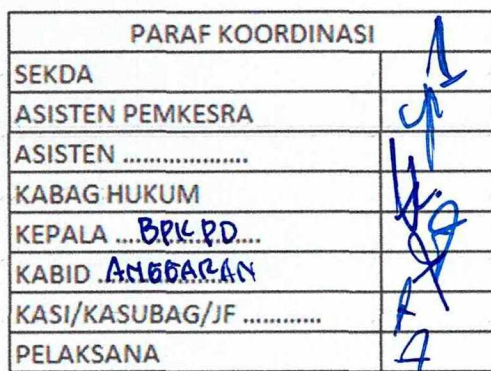 PARAF KOORDINASI
SEKDA
ASISTEN PEMKESRA
ASISTEN ...................
KABAG HUKUM
KEPALA ....BPKPD.....
KABID .ANGGARAN
KASI/KASUBAG/JF ............
PELAKSANA